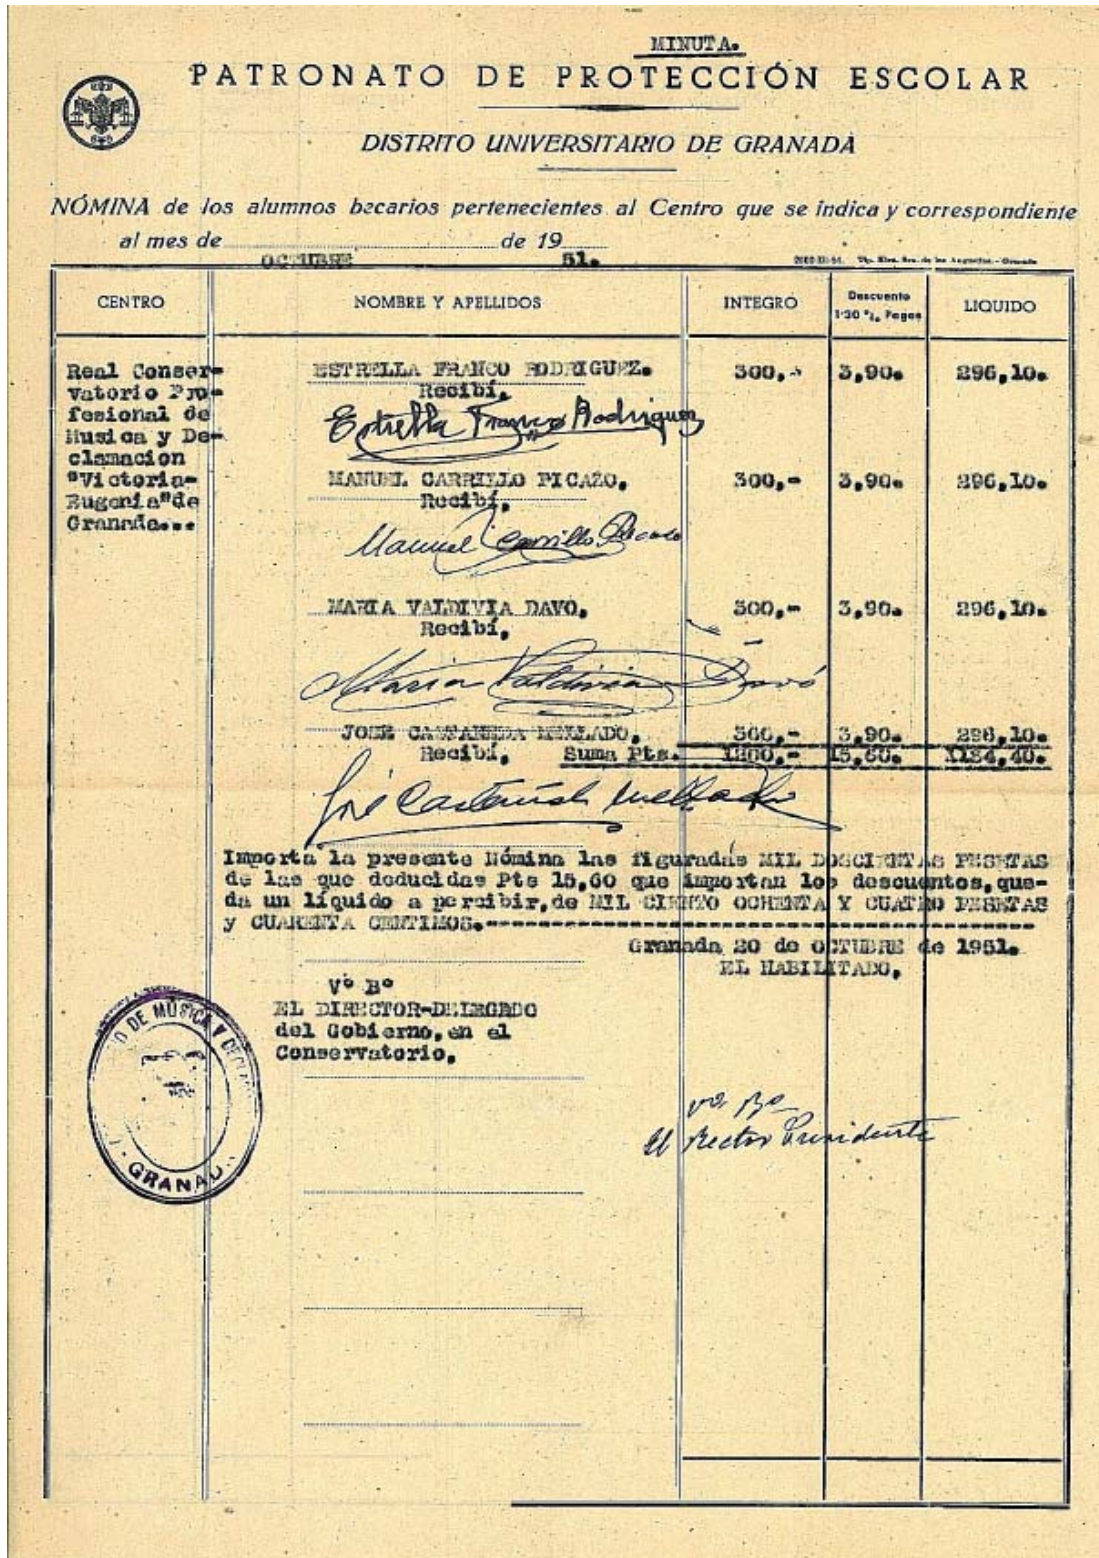 MINUTA.
PATRONATO DE PROTECCIÓN ESCOLAR
DISTRITO UNIVERSITARIO DE GRANADA
NÓMINA de los alumnos becarios pertenecientes al Centro que se indica y correspondiente
al mes de OCTUBRE de 19 51.
CENTRO NOMBRE Y APELLIDOS INTEGRO Descuento 1'30 %. Pagos LIQUIDO
Real Conser-
vatorio Pro-
fesional de
Musica y De-
clamacion
"Victoria-
Eugenia" de
Granada...
ESTRELLA FRANCO RODRIGUEZ. 300,- 3,90. 296,10.
Recibí,
Estrella Franco Rodriguez
MANUEL CARRILLO PICAZO, 300,- 3,90. 296,10.
Recibí,
Manuel Carrillo Picazo
MARIA VALDIVIA DAVO, 300,- 3,90. 296,10.
Recibí,
Maria Valdivia Davó
JOSE CASTAÑEDA MELLADO, 300,- 3,90. 296,10.
Recibí, Suma Pts. 1200,- 15,60. 1184,40.
José Castañeda Mellado
Importa la presente Nómina las figuradas MIL DOSCIENTAS PESETAS
de las que deducidas Pts 15,60 que importan los descuentos, que-
da un líquido a percibir, de MIL CIENTO OCHENTA Y CUATRO PESETAS
y CUARENTA CENTIMOS.
Granada 20 de OCTUBRE de 1951.
EL HABILITADO,
Vº Bº
EL DIRECTOR-DELEGADO
del Gobierno, en el
Conservatorio,
O DE MÚSICA Y DECLA
GRANAD
Vº Bº
El Rector Presidente